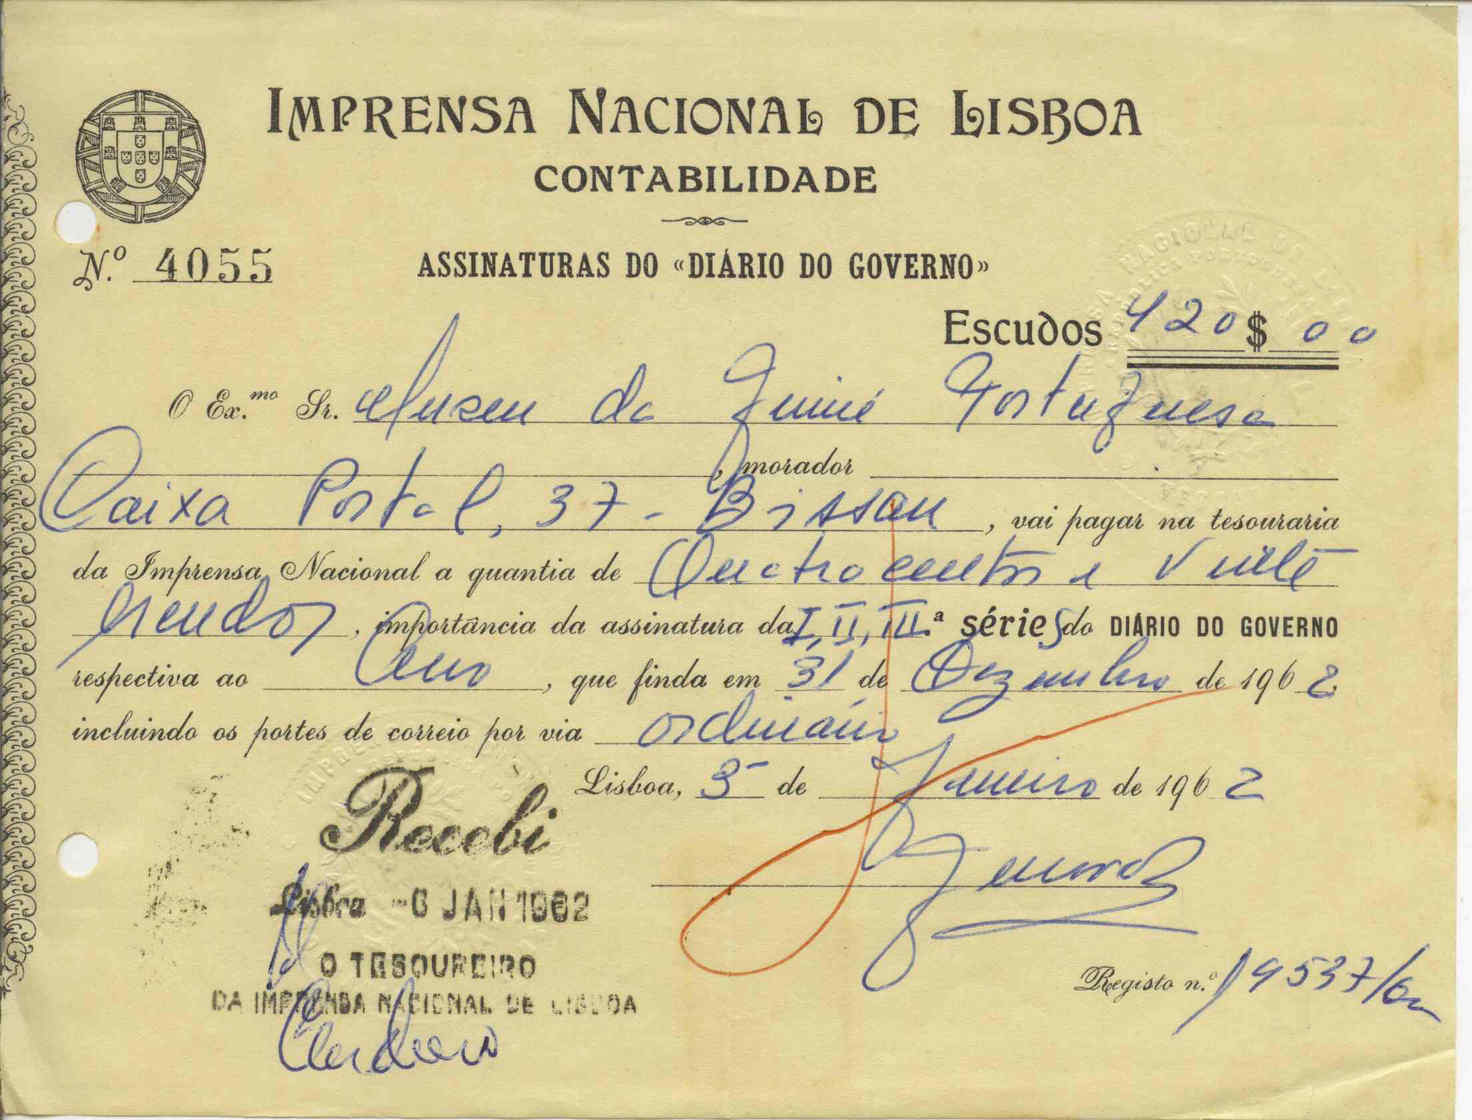 IMPRENSA NACIONAL DE LISBOA
CONTABILIDADE
N.º 4055
ASSINATURAS DO «DIÁRIO DO GOVERNO»
Escudos 420$00
O Ex.mo Sr. Museu da Guiné Portuguesa
, morador
Caixa Postal, 37 - Bissau, vai pagar na tesouraria
da Imprensa Nacional a quantia de Quatrocentos e Vinte
escudos, importância da assinatura da I, II, III.ª séries do DIÁRIO DO GOVERNO
respectiva ao Ano, que finda em 31 de Dezembro de 1962
incluindo os portes de correio por via ordinária
Lisboa, 3 de Janeiro de 1962
Recebi
Lisboa -6 JAN 1962
O TESOUREIRO
DA IMPRENSA NACIONAL DE LISBOA
Registo n.º 19537